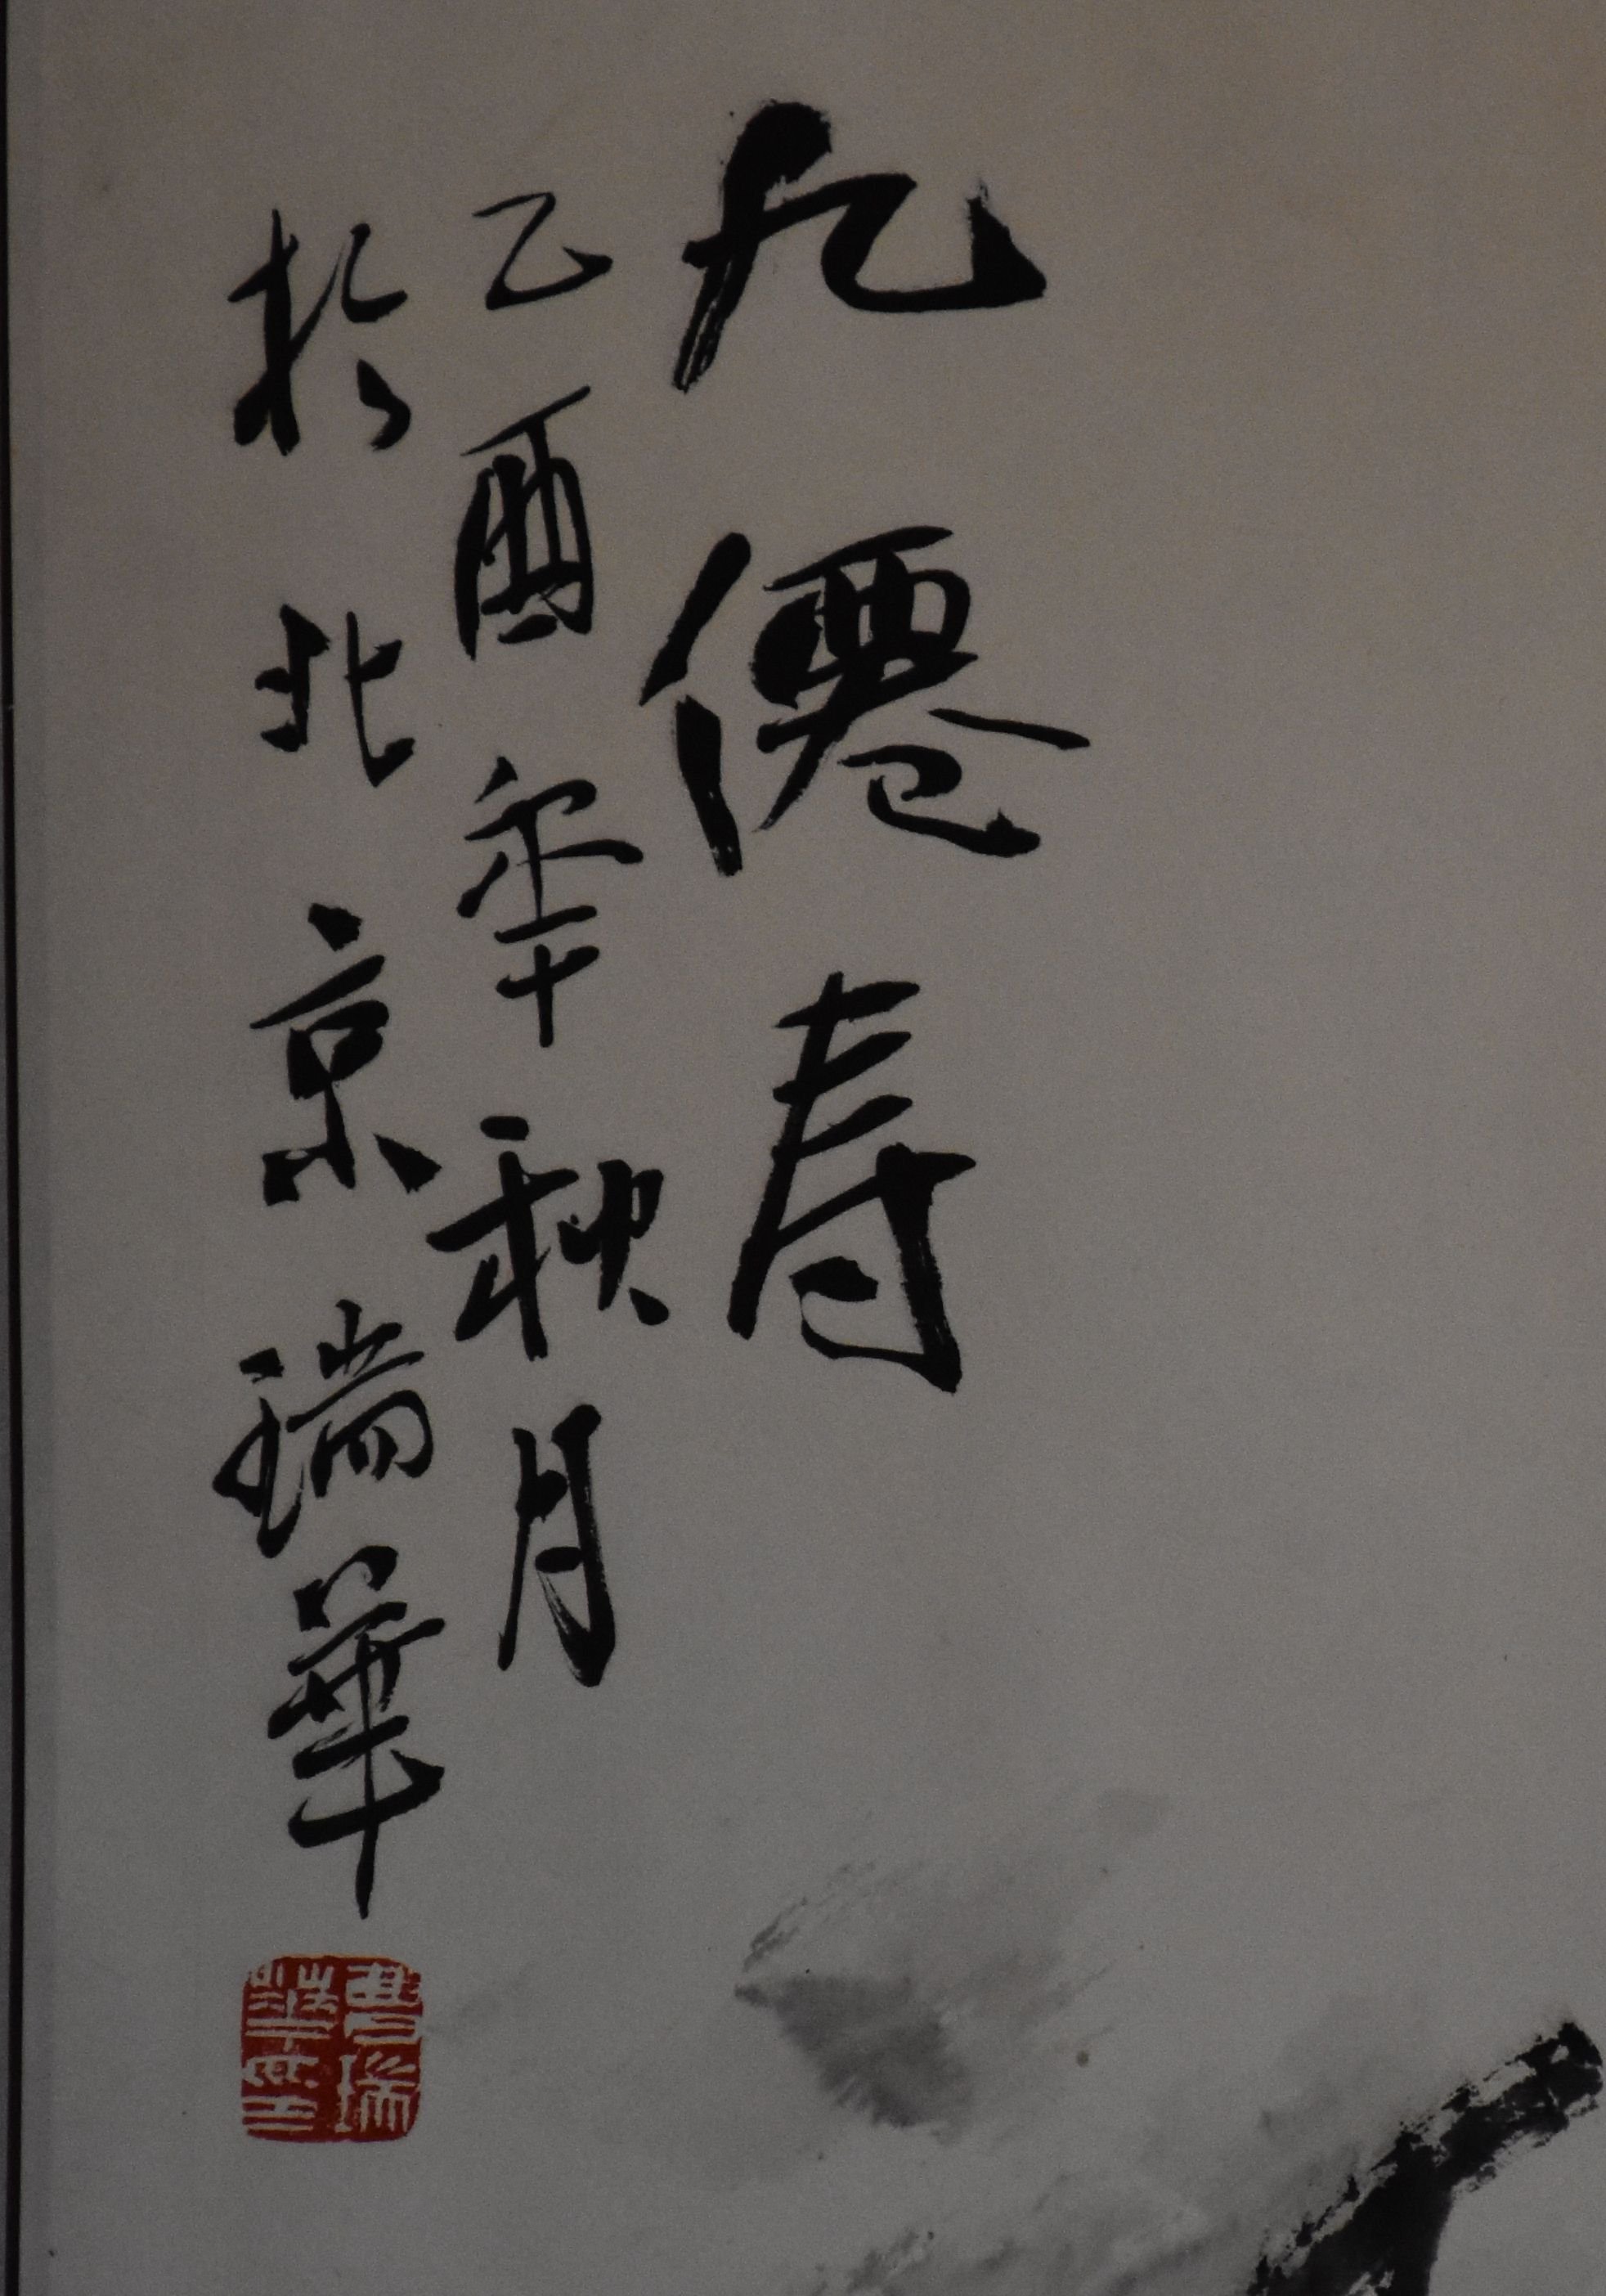 九僊寿
乙酉秊秋月
於北京瑞華
瑞
華印